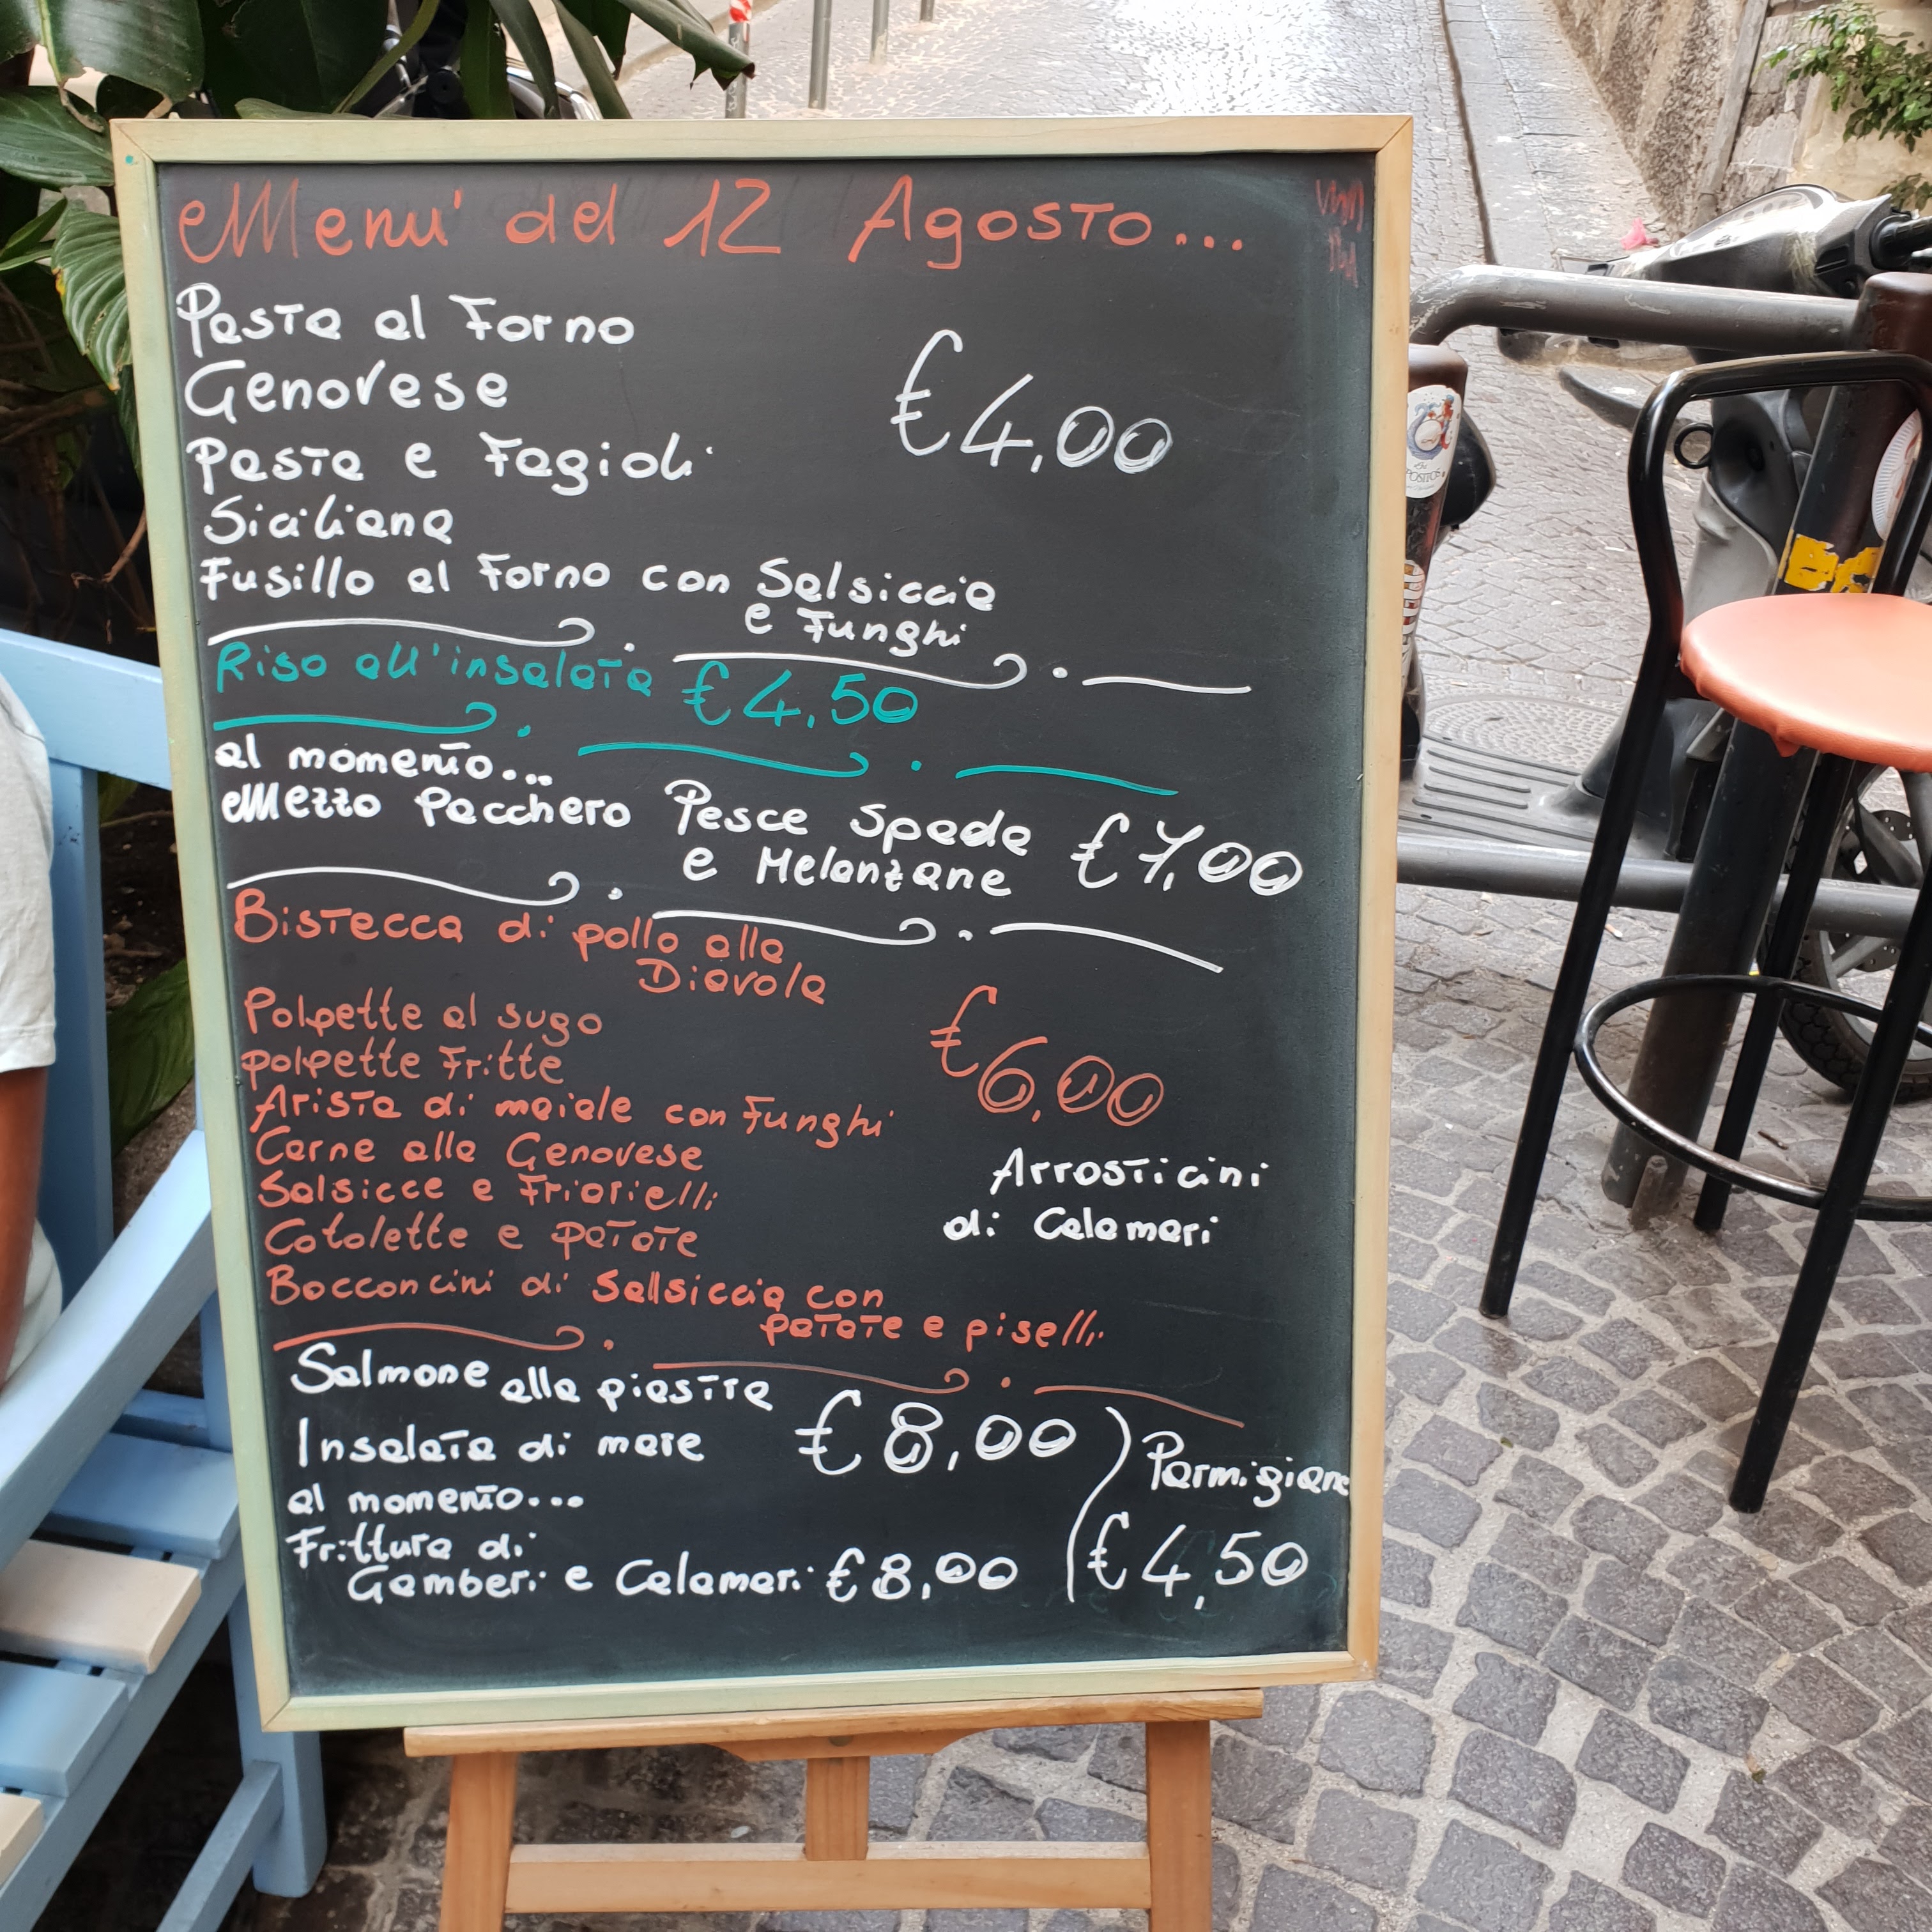 Menu' del 12 Agosto...
Pasta al Forno
Genovese
€4,00
Pasta e Fagioli
Siciliana
Fusillo al Forno con Salsiccia
e Funghi
Riso all'insalata €4,50
al momento...
Mezzo Pacchero Pesce Spada €7,00
e Melanzane
Bistecca di pollo alla
Diavola
Polpette al sugo
€6,00
polpette Fritte
Arista di maiale con Funghi
Carne alla Genovese
Salsicce e Friarielli
Cotolette e patate
Arrosticini
di Calamari
Bocconcini di Sallsiccia con
patate e piselli
Salmone alla piastra
€8,00
Insalata di mare
Parmigiana
€4,50
al momento...
Frittura di
Gamberi e Calamari €8,00